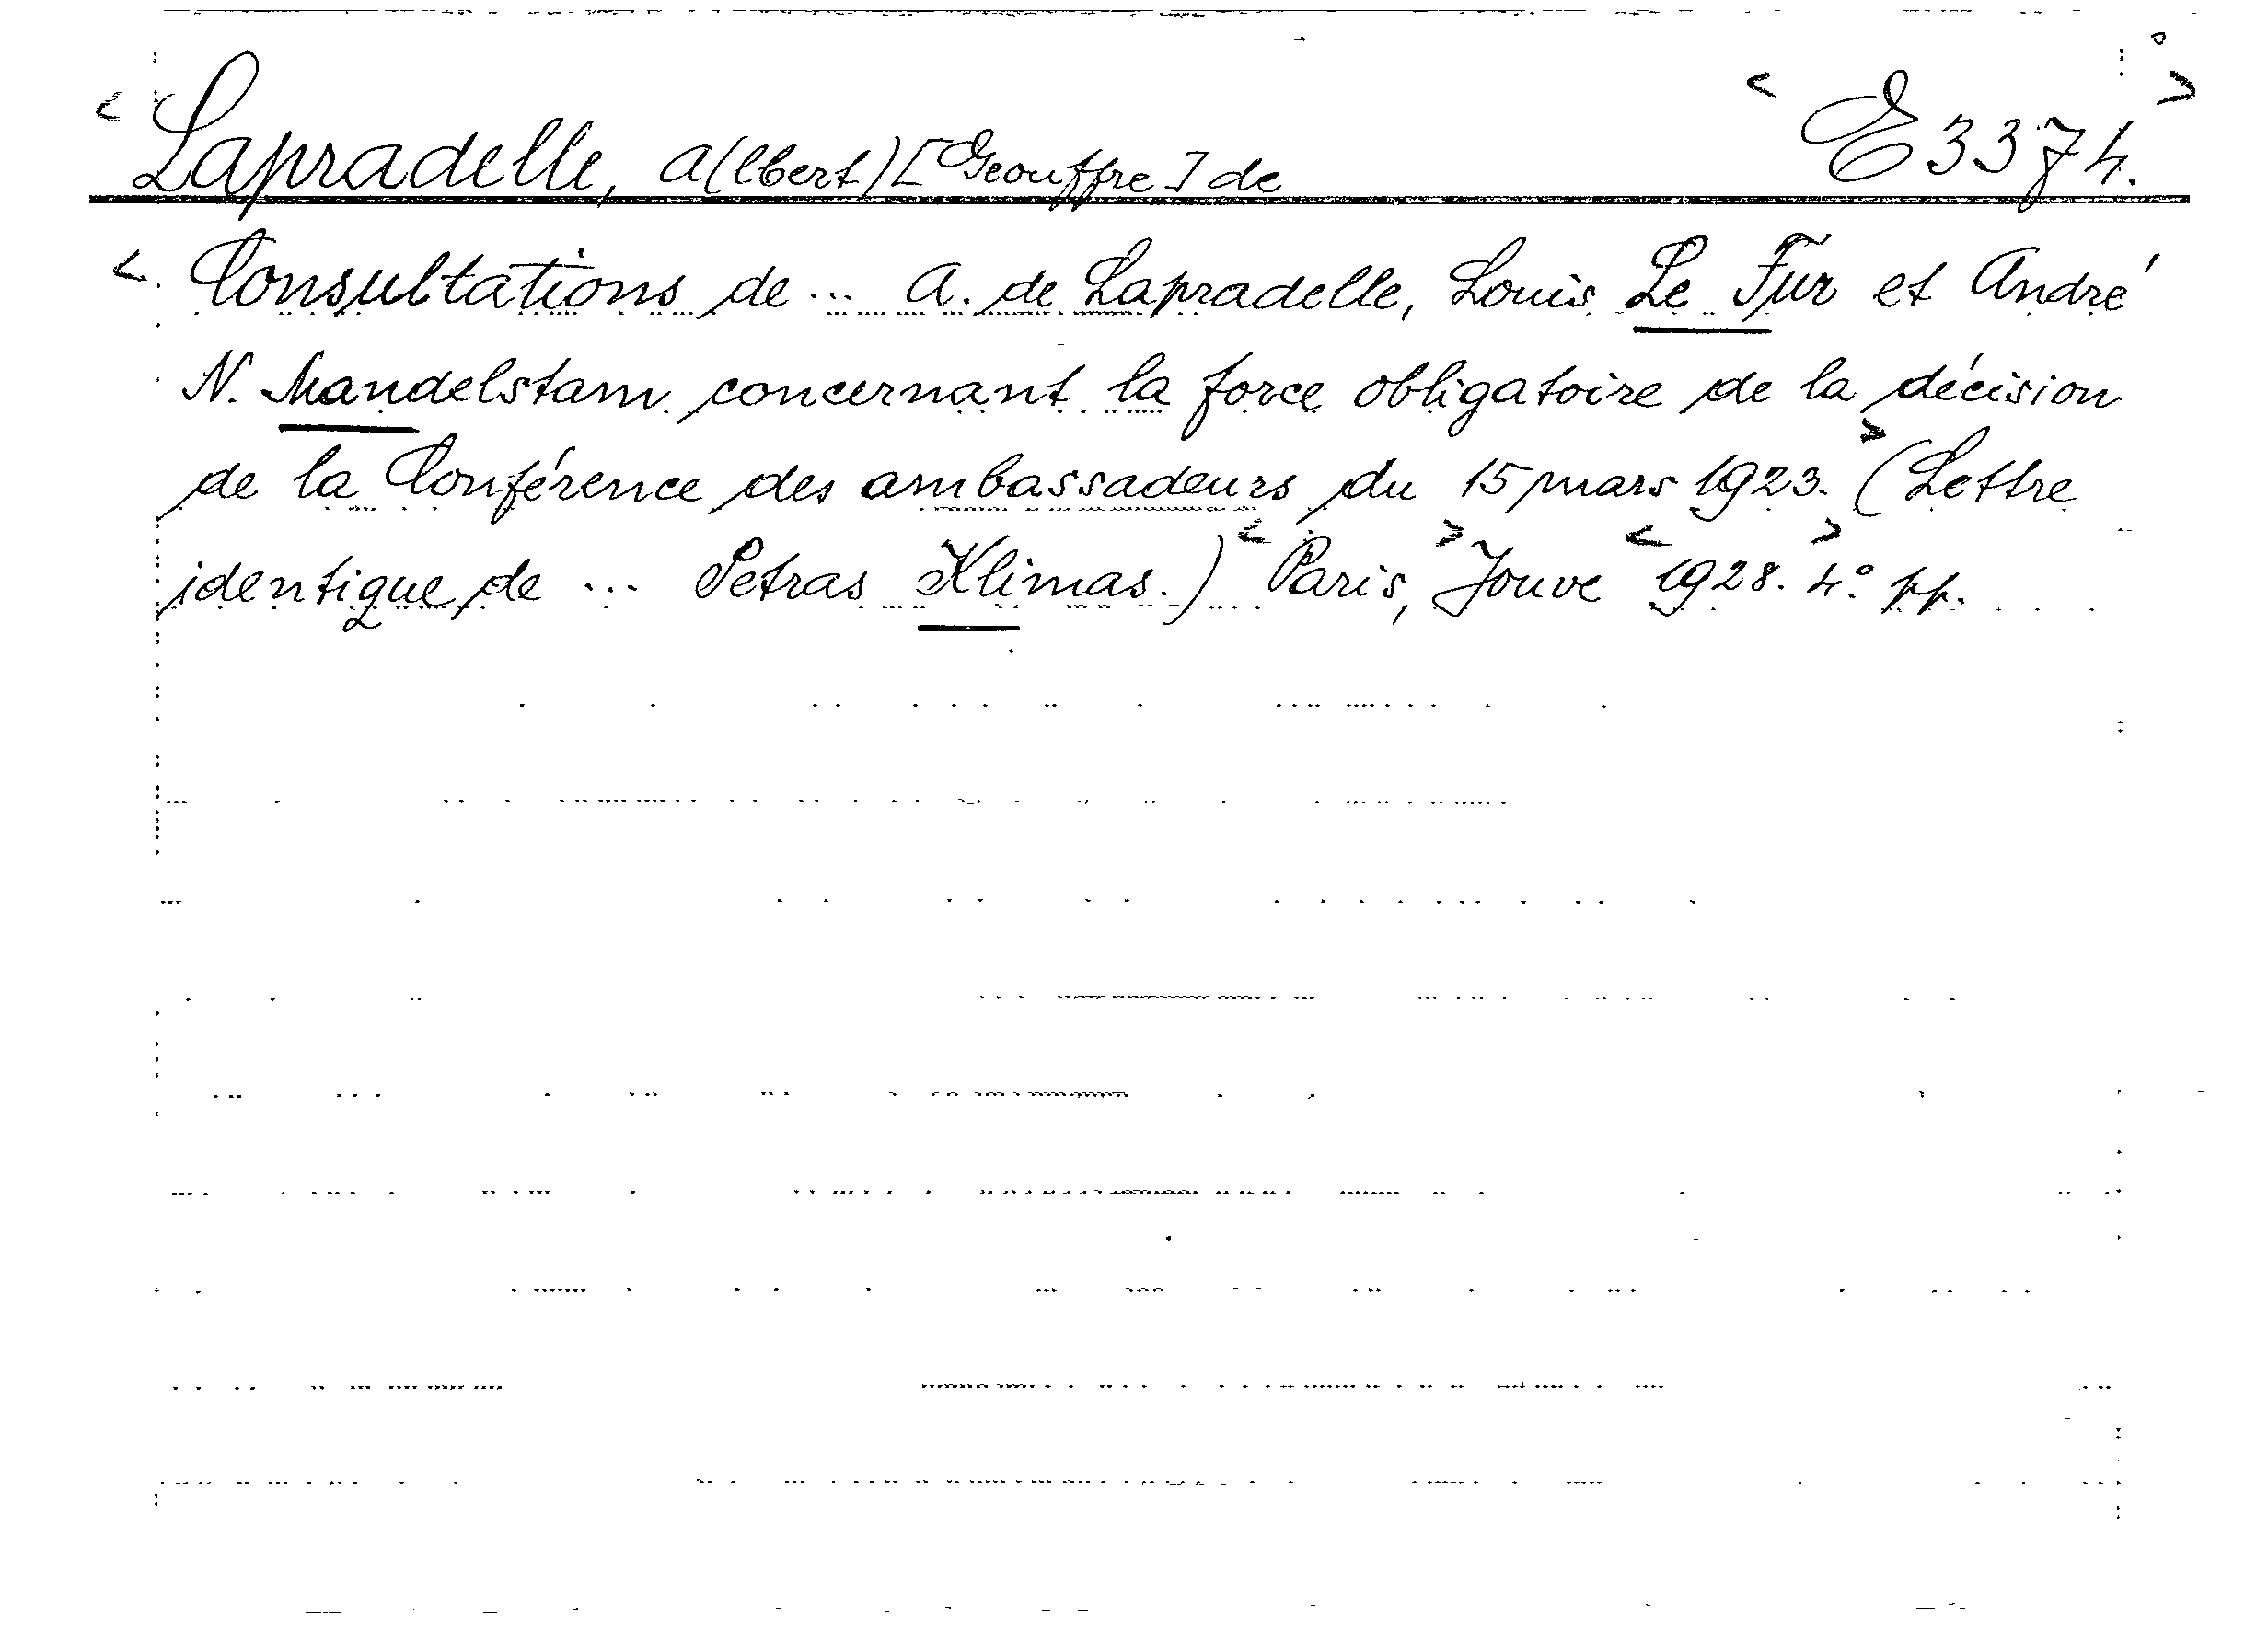 < Lapradelle, A(lbert) [Geouffre] de < E 3374. >
< Consultations de ... A. de Lapradelle, Louis Le Fur et André
N. Mandelstam concernant la force obligatoire de la décision
de la Conférence des ambassadeurs du 15 mars 1923. > (Lettre
identique de ... Petras Klimas.) < Paris, > Jouve < 1928. > 4:° pp.